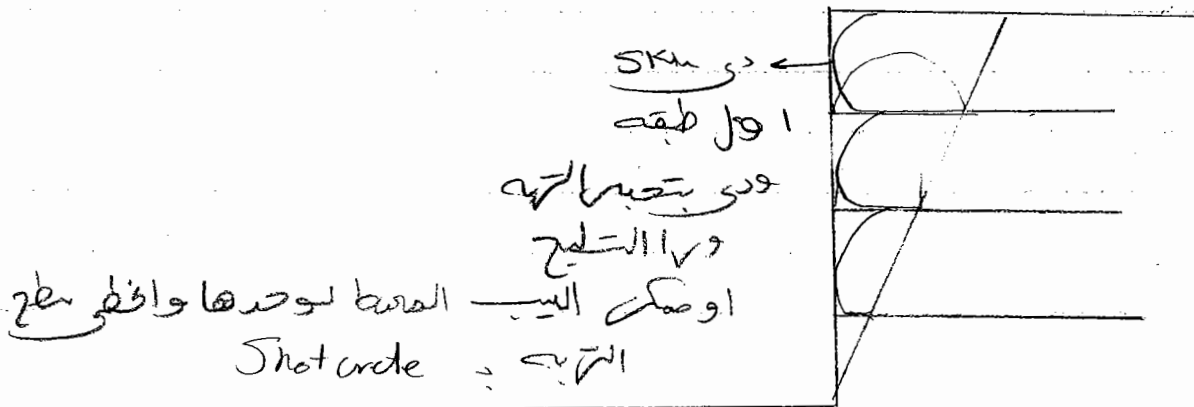 دى Skin
اول طبقه
ودى بتحبس التربه
ورا التسليح
او ممكن اسيب الحائط لوحدها واغطى سطح
التربه بـ Shotcrete